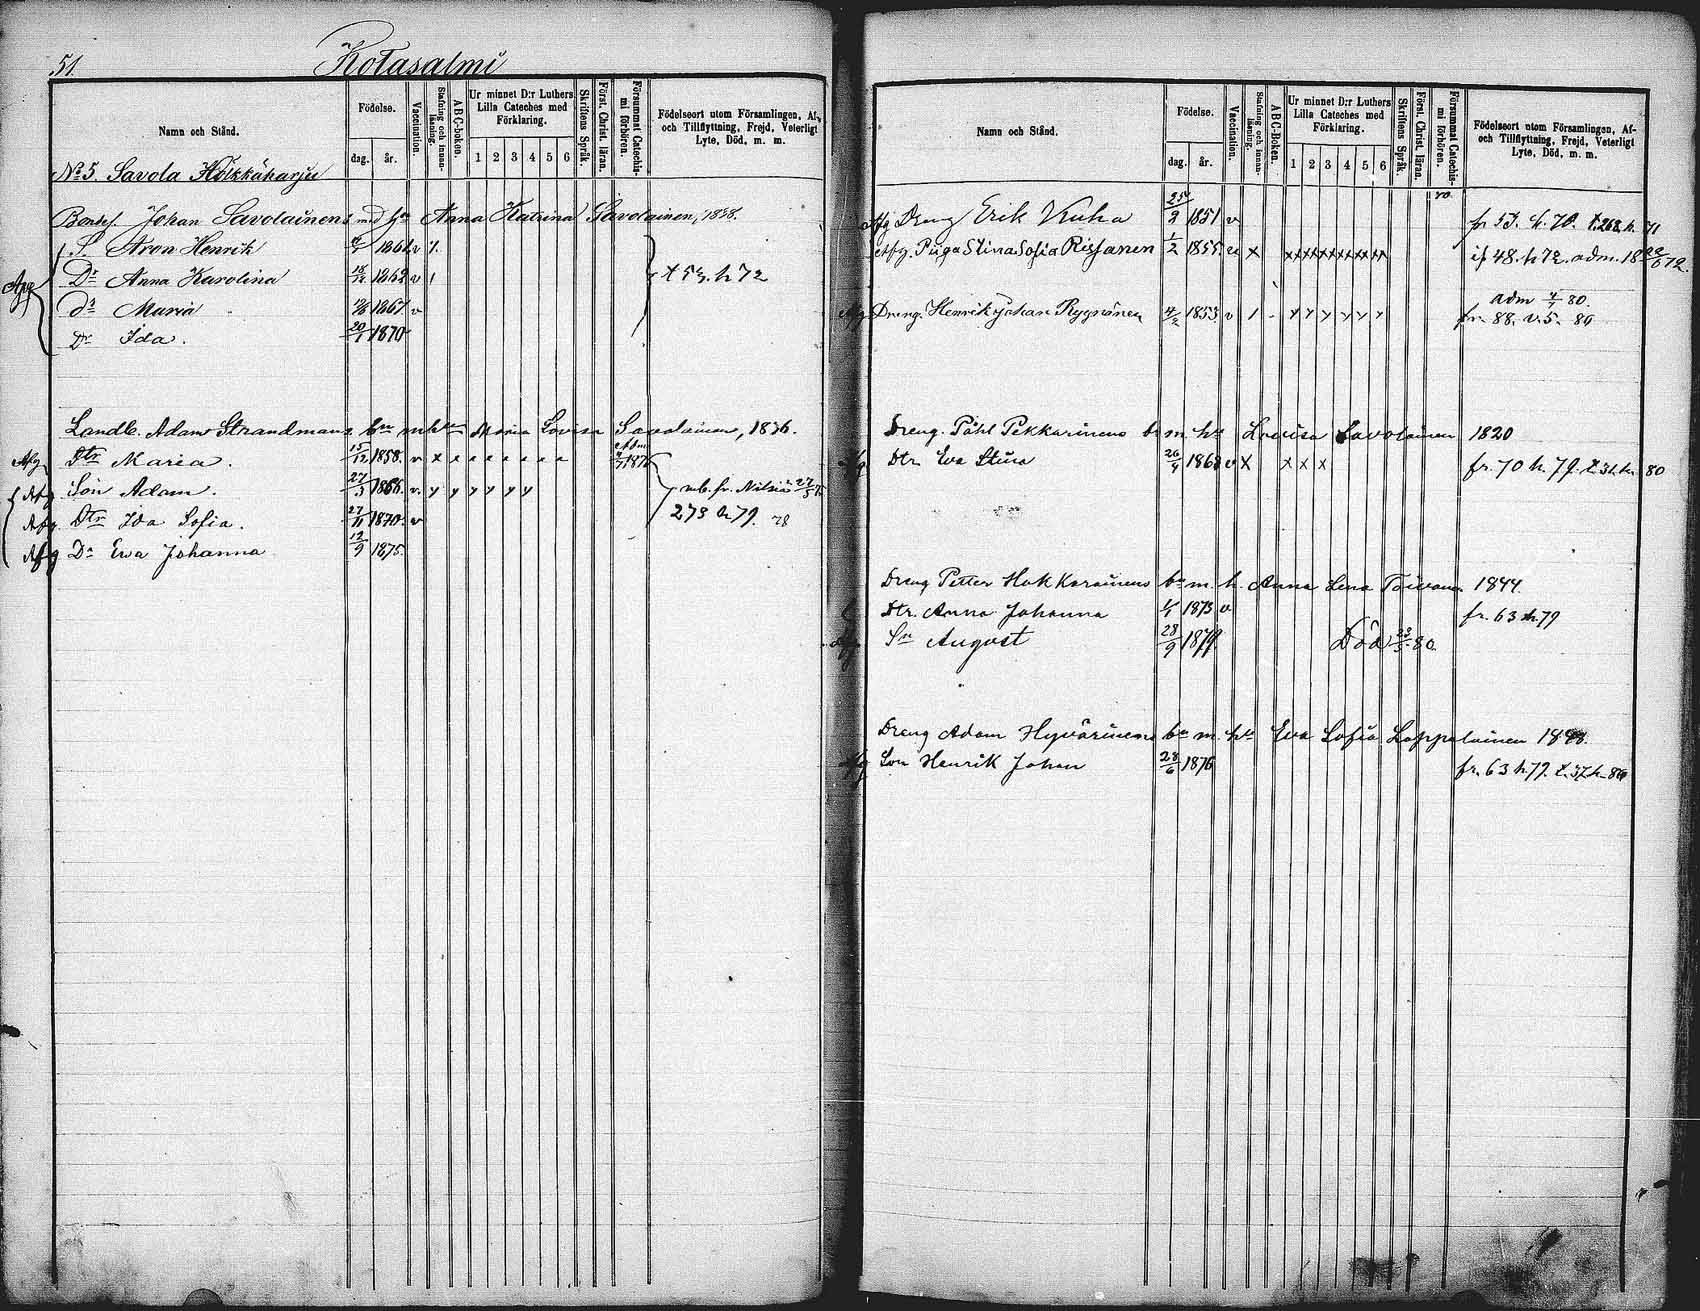 51.
Kotasalmi
Namn och Stånd.
Födelse.
dag. år.
Vaccination.
Stafning och innan-läsning.
ABC-boken.
Ur minnet D:r Luthers Lilla Cateches med Förklaring.
1 2 3 4 5 6
Skriftens Språk.
Först. Christ. läran.
Försummat Catechis-mi förhören.
Födelseort utom Församlingen, Af- och Tillflyttning, Frejd, Veterligt Lyte, Död, m. m.
No 5. Savola Hökkäharju
Johan Savolainens med hu Anna Katrina Savolainen, 1838.
S. Aron Henrik v
Dr Anna Karolina 18/12 1862 v
t 53. h 72
da Maria 1867 v
Dr Ida. 20/1 1870
Landb. Adam Strandmans bn m hu Maria Lovisa Savolainen, 1836.
Afg Dtr Maria. 15/12 1858. v x
Afg Son Adam. 27/3 1866. v. y y y y y y
mb. fr. Nilsiä
Afg. Dtr Ida Sofia. 27/11 1870 v
273 h 79.
Afg Dr Ewa Johanna 12/9 1875.
Namn och Stånd.
Födelse.
dag. år.
Vaccination.
Stafning och innan-läsning.
ABC-boken.
Ur minnet D:r Luthers Lilla Cateches med Förklaring.
1 2 3 4 5 6
Skriftens Språk.
Först. Christ. läran.
Försummat Catechis-mi förhören.
Födelseort utom Församlingen, Af- och Tillflyttning, Frejd, Veterligt Lyte, Död, m. m.
Afg Dreng Erik Kuha 25/2 1851 v fr 53. h. 70. t. 268. h. 71
Afg. Piga Stina Sofia Rissanen 1/2 1855. x 48. h 72. adm.
adm 4/7 80.
Afg Dreng. Henrik Johan Ryynänen 4/2 1853 v fr. 88. v. 5. 80
Dreng. Påhl Pekkarinens bn m hu Lovisa Savolainen 1820
Afg Dtr Eva Stina 26/4 1868 v x x x x fr. 70 h. 79. t. 31. h. 80
Dreng Petter Hakkarainens bn m. h. Anna Lena Toivanen 1844.
Dtr. Anna Johanna 1/1 1873 v fr. 63 h. 79
Afg Sn August 28/9 1879 Död 23/5 80.
Dreng Adam Hyvärinens bn m. hu Eva Sofia Lappalainen
Afg Son Henrik Johan 28/6 1876 fr. 63 h. 79. t. 37. h. 80